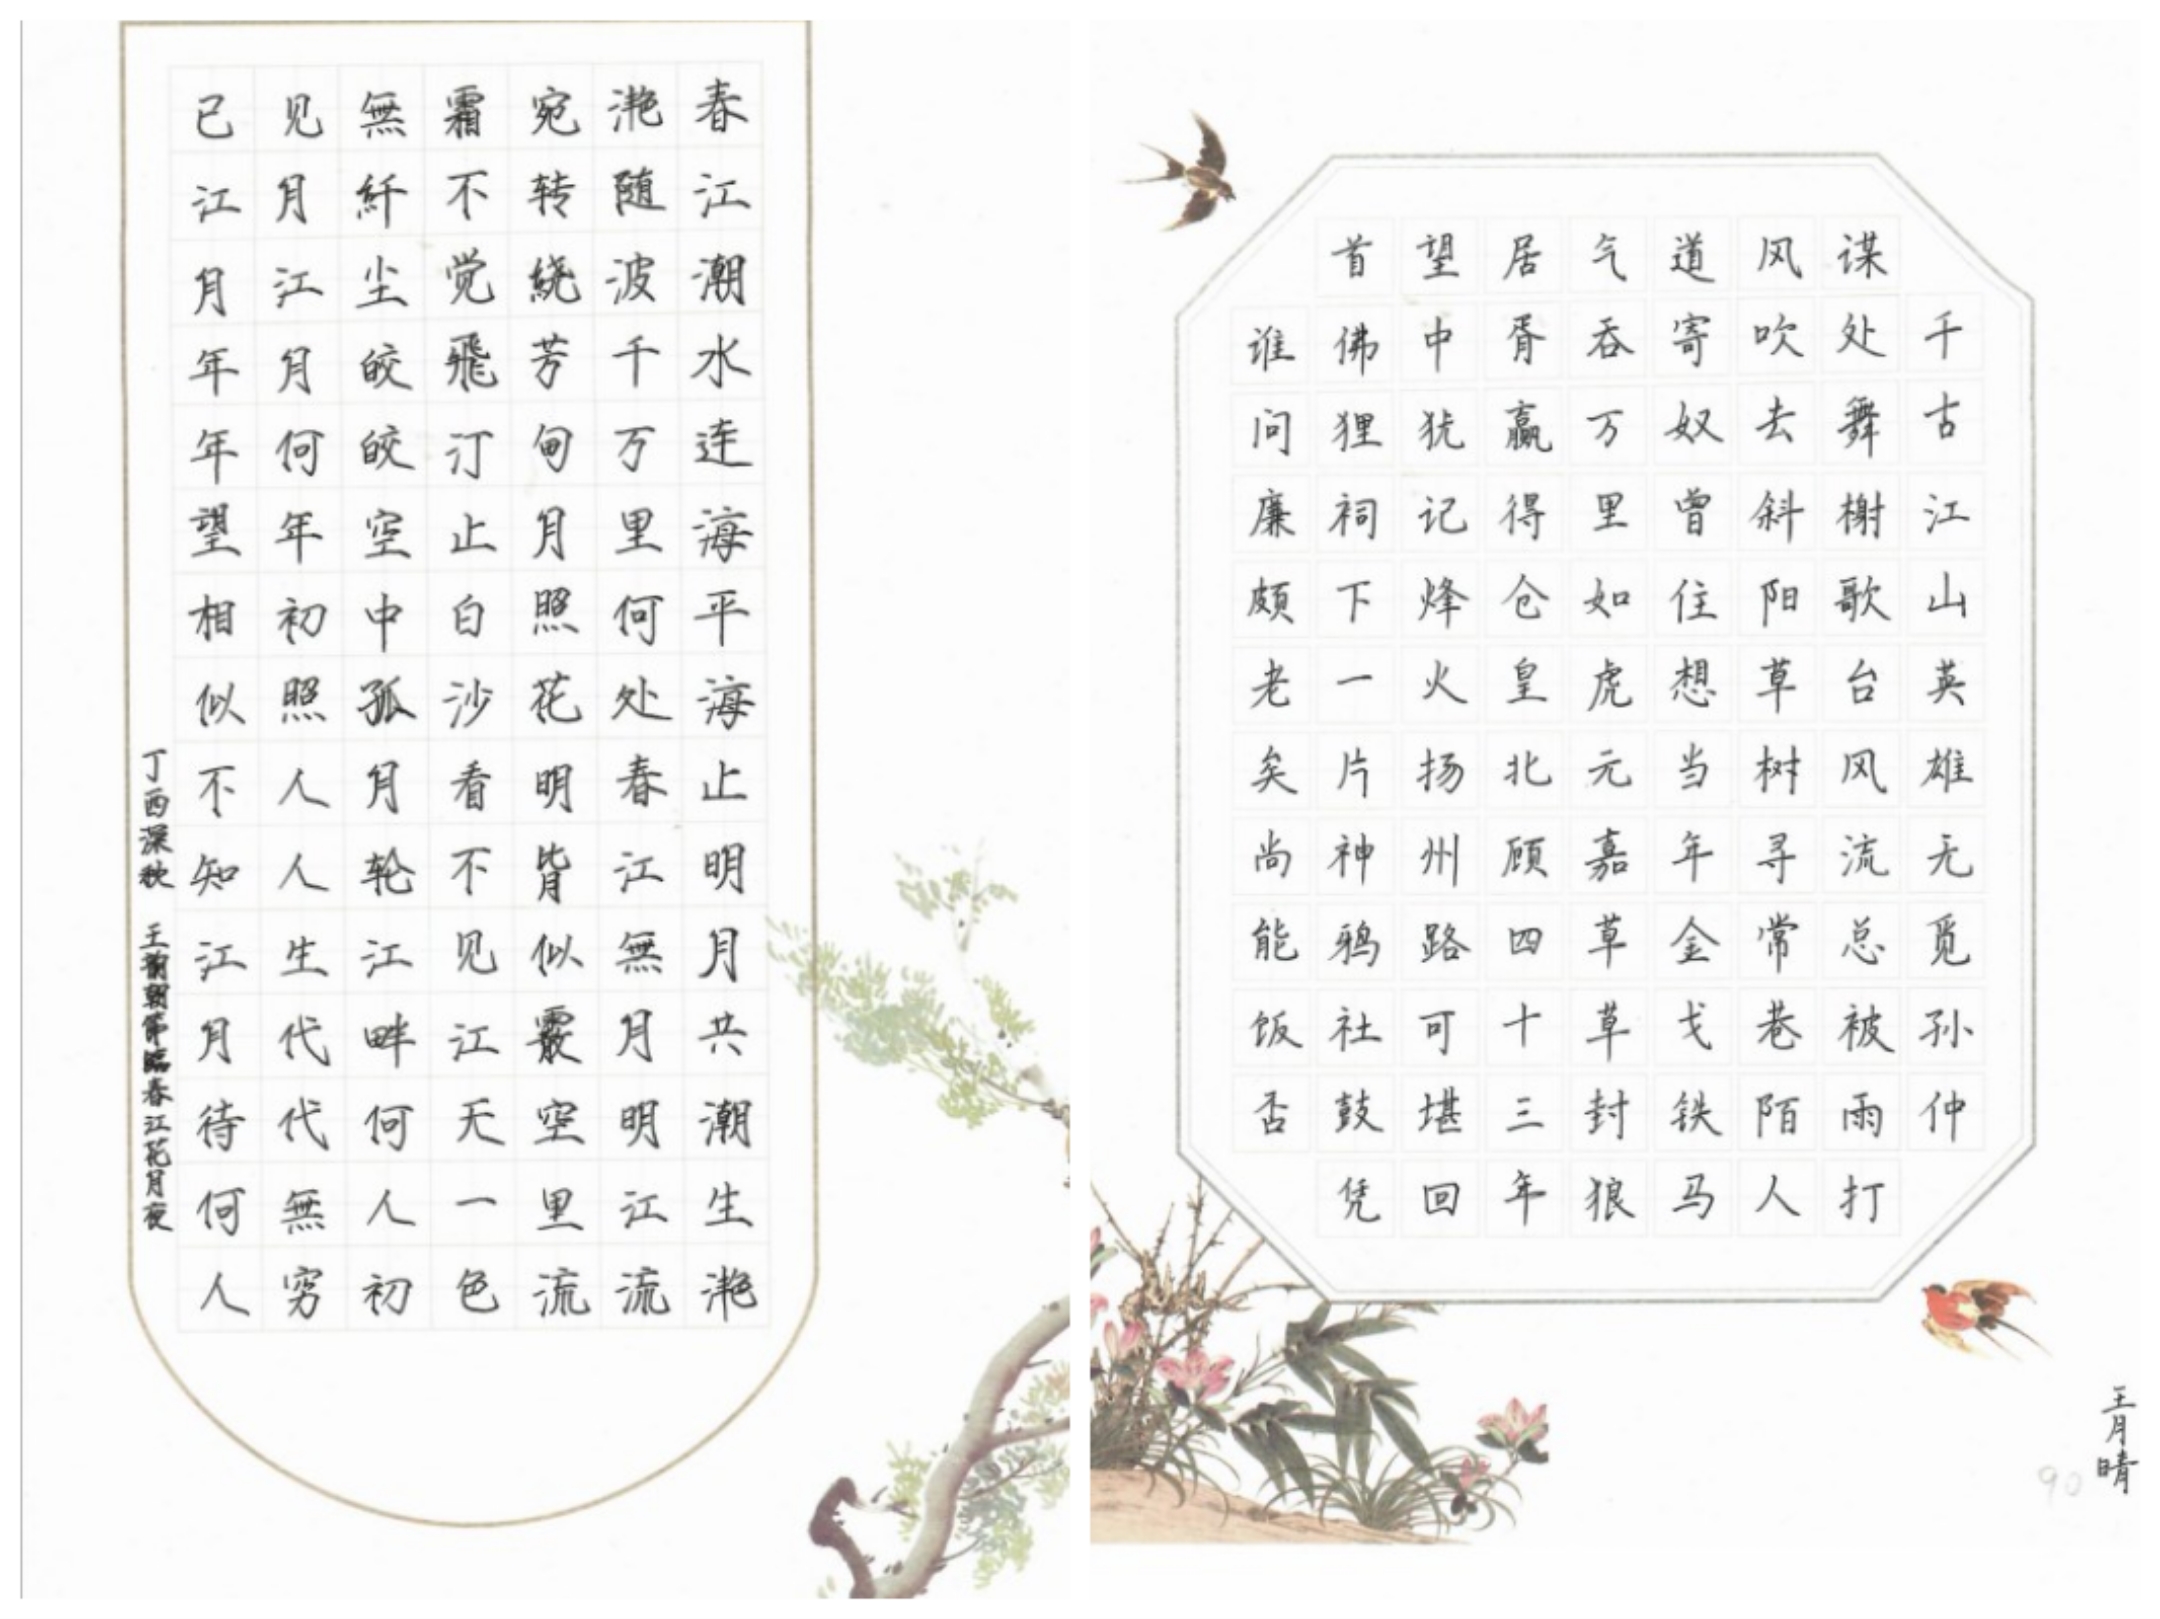 春江潮水连海平海止明月共潮生滟
滟随波千万里何处春江無月明江流
宛转绕芳甸月照花明皆似霰空里流
霜不觉飛汀止白沙看不见江天一色
無纤尘皎皎空中孤月轮江畔何人初
见月江月何年初照人人生代代無穷
已江月年年望相似不知江月待何人
丁酉深秋 王臨春江花月夜
千古江山英雄无觅孙仲
谋处舞榭歌台风流总被雨打
风吹去斜阳草树寻常巷陌人
道寄奴曾住想当年金戈铁马
气吞万里如虎元嘉草草封狼
居胥赢得仓皇北顾四十三年
望中犹记烽火扬州路可堪回
首佛狸祠下一片神鸦社鼓凭
谁问廉颇老矣尚能饭否
王月晴
90